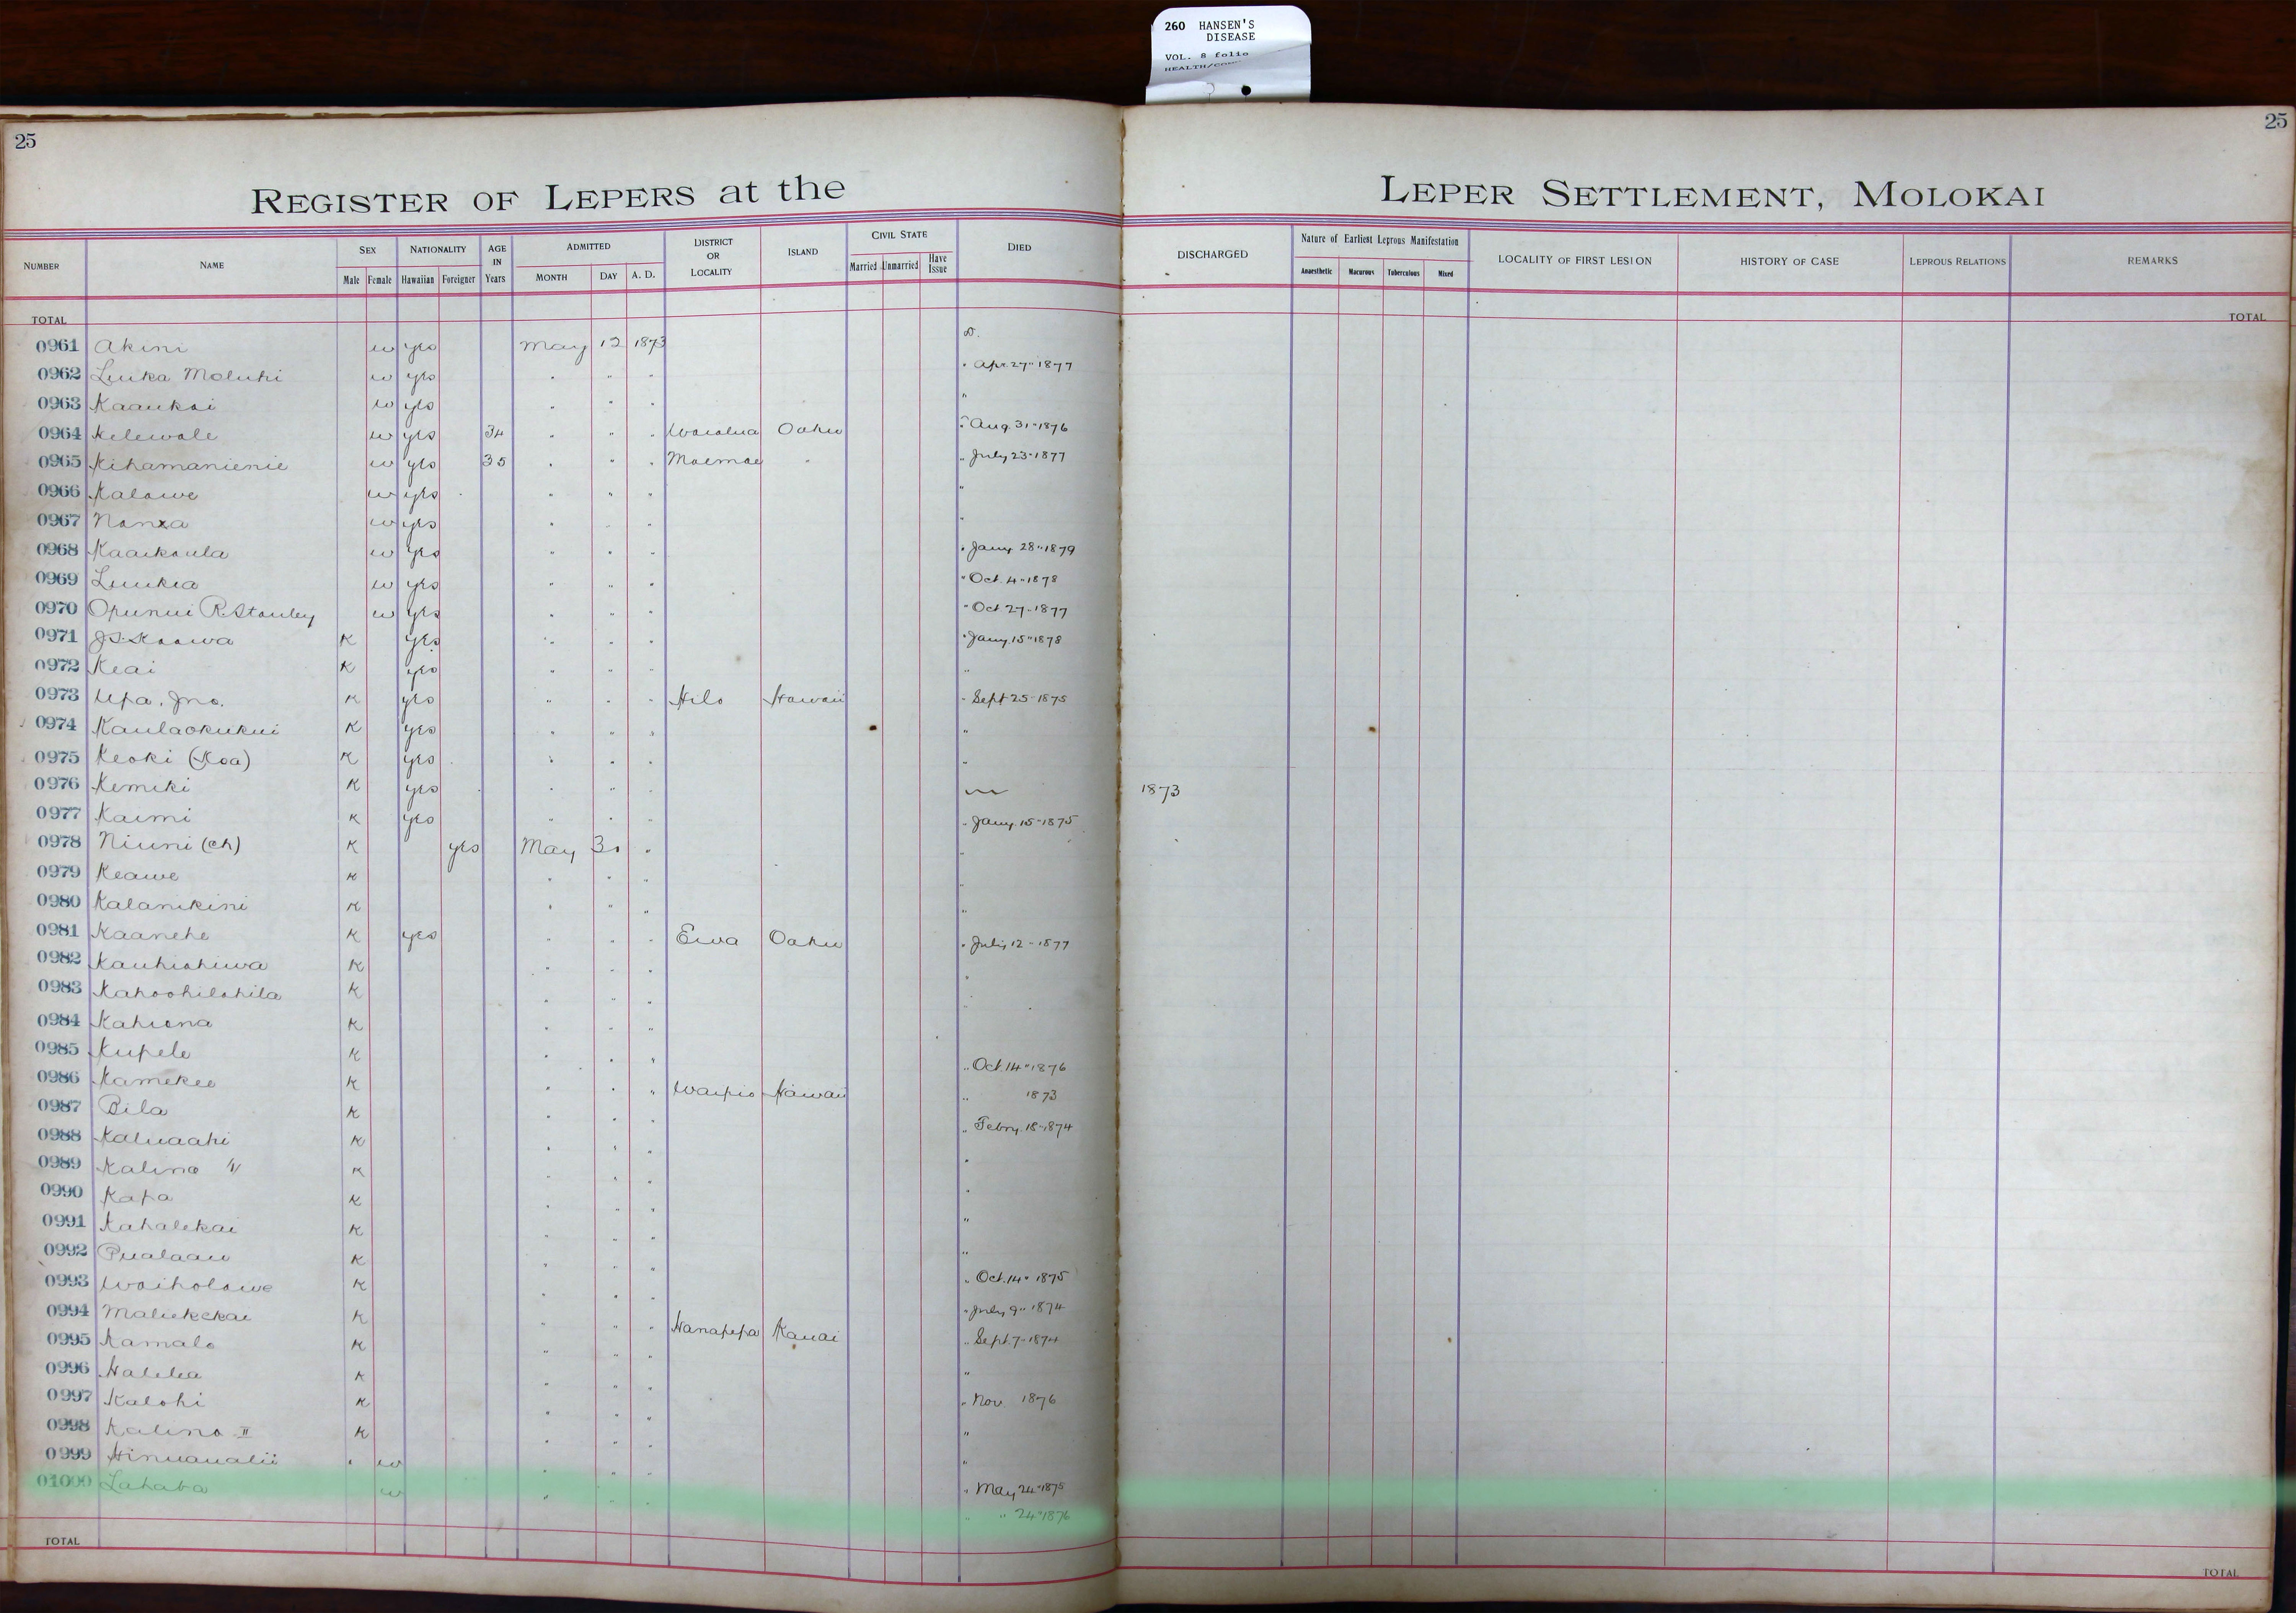 260 HANSEN'S
DISEASE
VOL. 8 folio
25
25
REGISTER OF LEPERS at the LEPER SETTLEMENT, MOLOKAI
NUMBER NAME SEX Male Female NATIONALITY Hawaiian Foreigner AGE IN Years ADMITTED MONTH DAY A. D. DISTRICT OR LOCALITY ISLAND CIVIL STATE Married Unmarried Have Issue DIED DISCHARGED Nature of Earliest Leprous Manifestation Anaesthetic Macurous Tuberculous Mixed LOCALITY OF FIRST LESION HISTORY OF CASE LEPROUS RELATIONS REMARKS
TOTAL TOTAL
0961 Akini w yes May 12 1873 D.
0962 Luika Moluhi w yes " " " " Apr. 27" 1877
0963 Kaaukai w yes " " " "
0964 Kelewale w yes 34 " " " Waialua Oahu " Aug. 31" 1876
0965 Kihamanienie w yes 35 " " " Moemoe " " July 23" 1877
0966 Kalawe w yes " " " "
0967 w yes " " " "
0968 Kaaikaula w yes " " " " Jany 28" 1879
0969 Luukia w yes " " " " Oct. 4" 1878
0970 Opunui R. Stanley w yes " " " " Oct 27" 1877
0971 J.S. Kaawa K yes " " " " Jany. 15" 1878
0972 Keai K yes " " " "
0973 Upa, Jno. K yes " " " Hilo Hawaii " Sept 25" 1875
0974 Kaulaokukui K yes " " " "
0975 Keoki (Koa) K yes " " " "
0976 Kemiki K yes " " " 1873
0977 Kaimi K yes " " " " Jany. 15" 1875
0978 Niuni (ch) K yes May 30 " "
0979 Keawe K " " " "
0980 Kalanikini K " " " "
0981 Kaanehe K yes " " " Ewa Oahu " July 12" 1877
0982 Kauhiahiwa K " " " "
0983 Kahoohilohila K " " " "
0984 Kahiona K " " "
0985 Kupele K " " " " Oct. 14" 1876
0986 Kamekeo K " " " Waipio Hawaii " 1873
0987 Bila K " " " " Febry. 18" 1874
0988 Kaluaahi K " " " "
0989 Kalino K " " " "
0990 Kapa K " " " "
0991 Kahalekai K " " " "
0992 Pualaau K " " "
0993 Waiholowe K " " " " Oct. 14" 1875
0994 Maliekekai K " " " Hanapepa Kauai " July 9" 1874
0995 Kamalo K " " " " Sept. 7" 1874
0996 Halelea K " " " "
0997 Kalohi K " " " " Nov. 1876
0998 Kalino II K " " " "
0999 Hinuaualii " w " " " "
01000 Lahaba w " " " " May 24" 1875
" " 24" 1876
TOTAL TOTAL